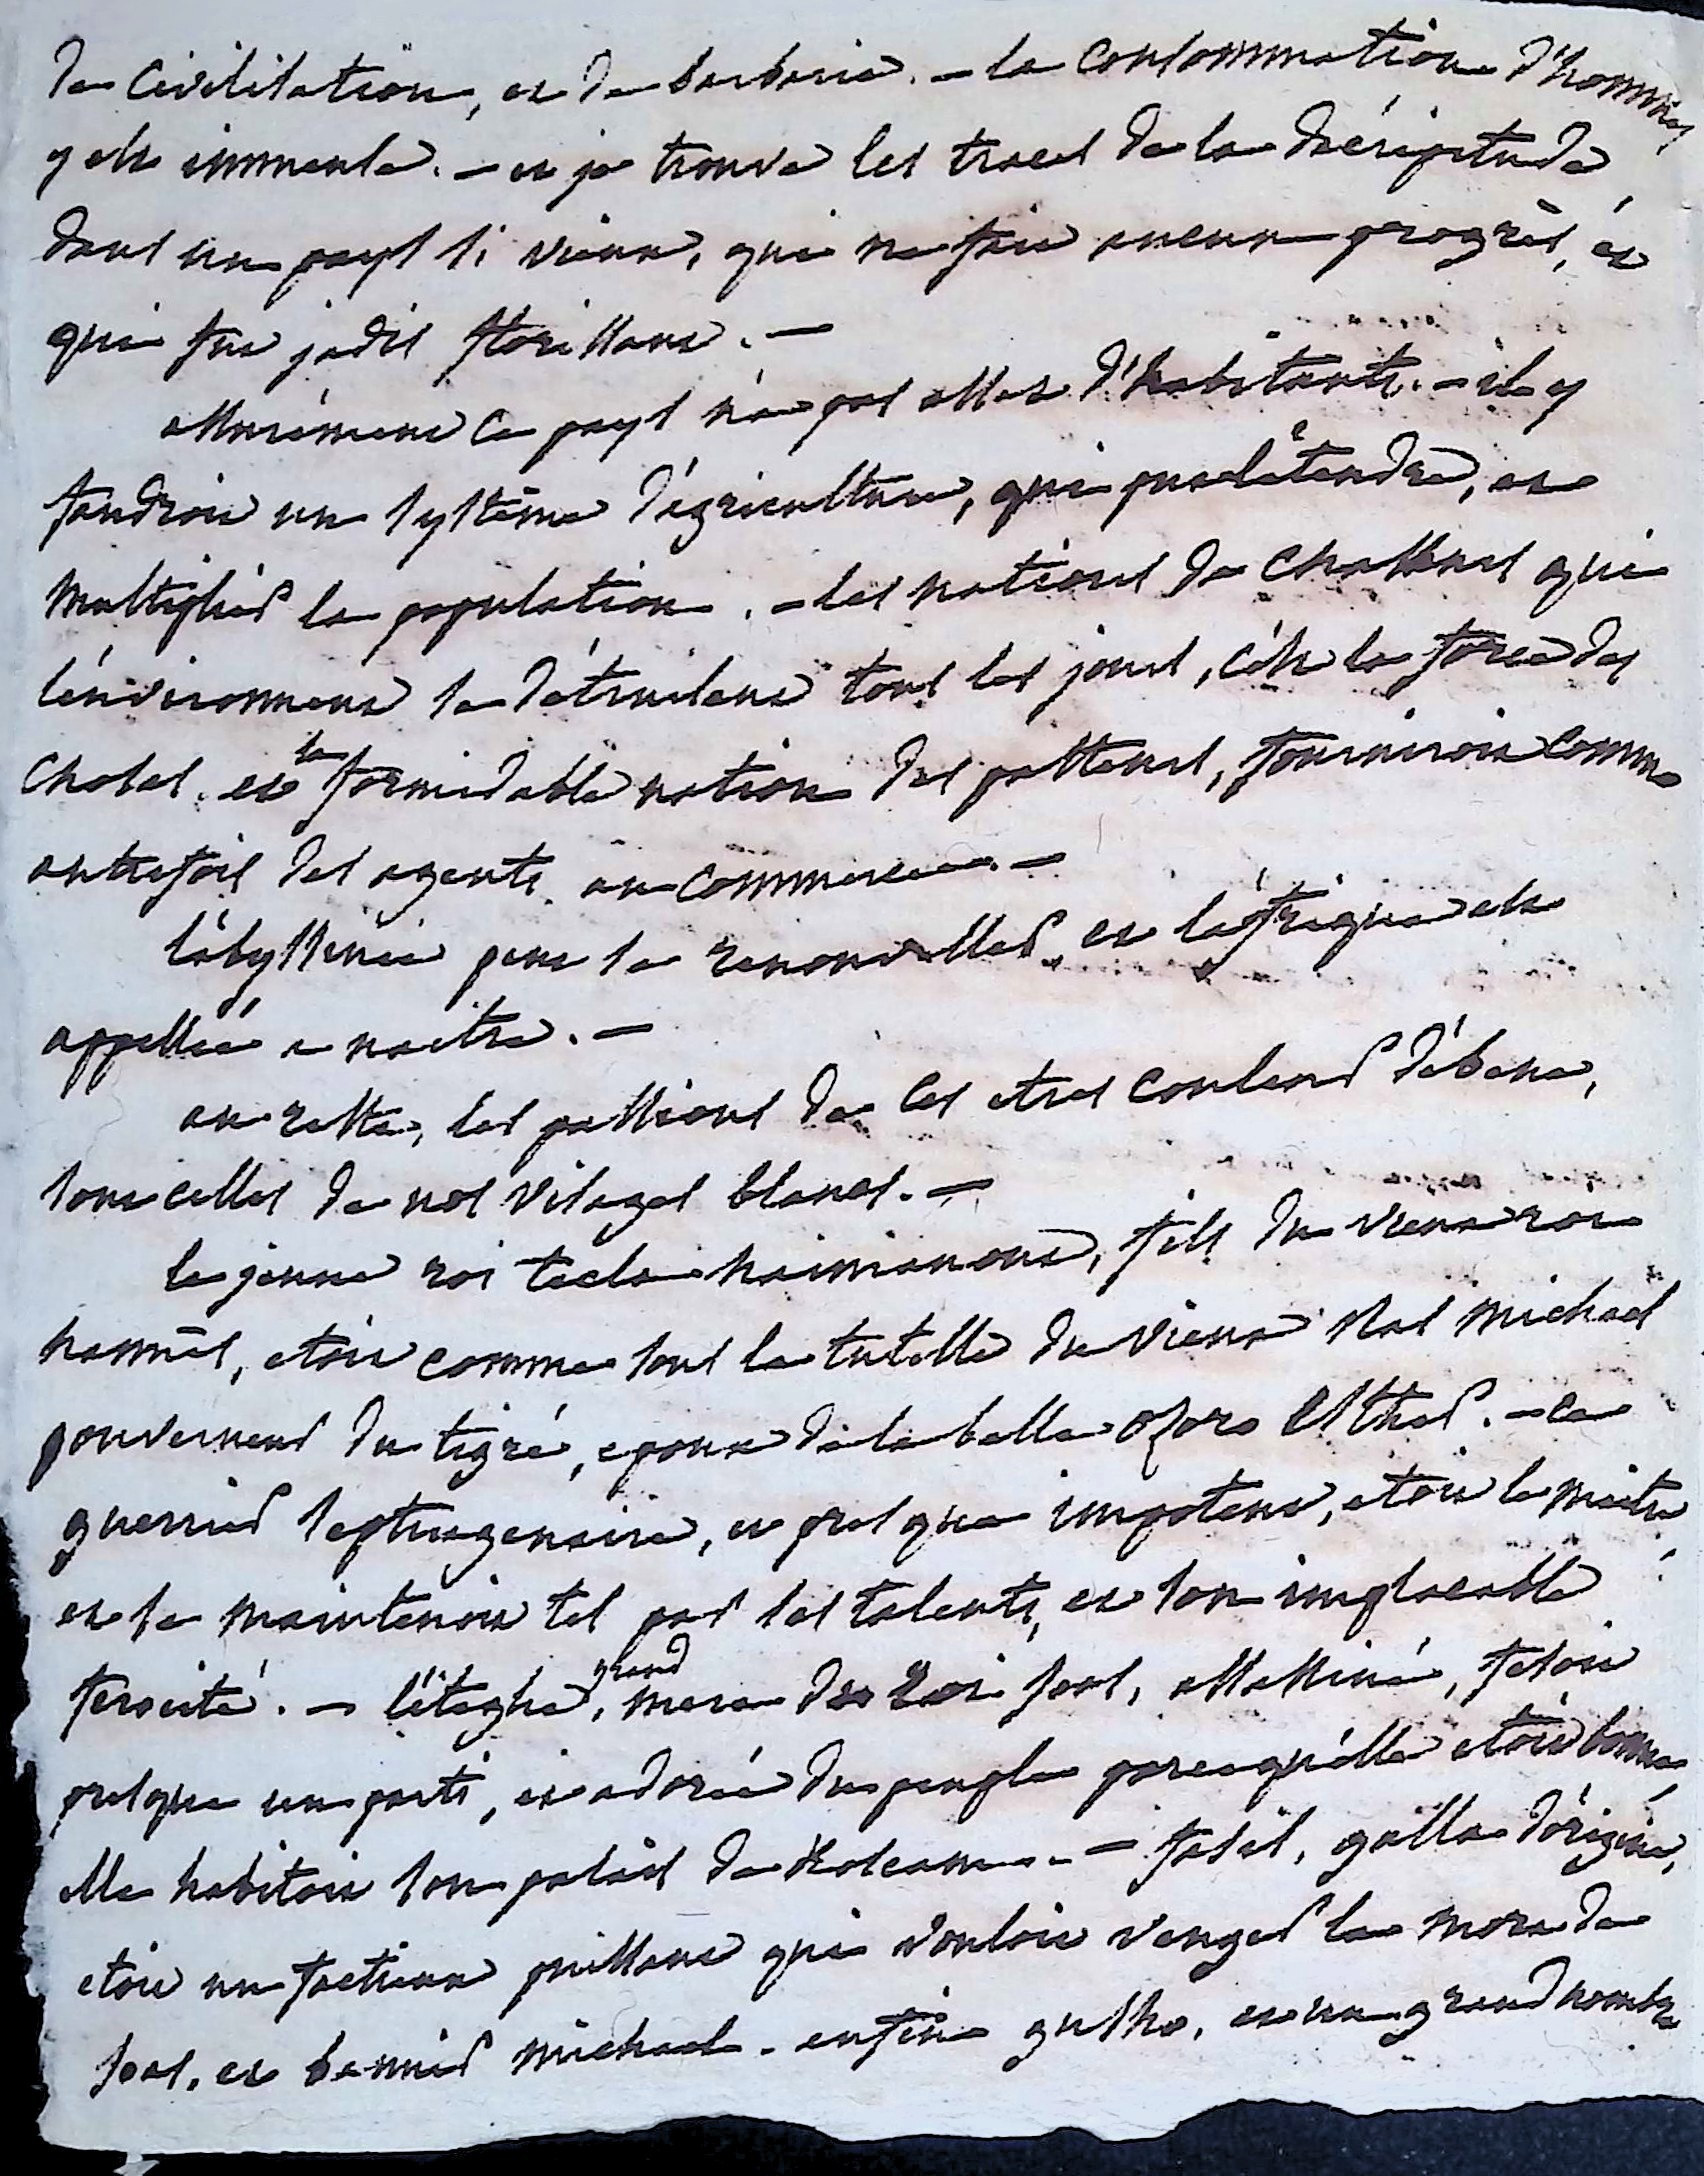 de civilisation, et de barbarie. – la consommation d'hommes
y est immense. – et je trouve les traces de la décrépitude
dans un pays si vieux, qui ne fait aucun progrès, et
qui fut jadis florissant. –
assurément ce pays n'a pas assez d'habitants. – il y
faudroit un système d'agriculture, qui put s'étendre, et
multiplier la population. – les nations de chasseurs qui
l'environnent se détruisent tous les jours, c'est la force des
choses. et la formidable nation des pasteurs, fourniroit comme
autrefois des agents au commerce. –
l'abyssinie peut se renouveller, et l'afrique est
appellée a naitre. –
au reste, les passions de ces etres couleur d'ébene,
sont celles de nos visages blancs. –
le jeune roi tecla haimanout, fils du vieux roi
hannès, etoit comme sous la tutelle du vieux Ras michael
gouverneur du tigré, epoux de la belle ozoro Esther. – ce
guerrier septuagenaire, et presque impotent, etoit le maitre
et se maintenoit tel par ses talents, et son implacable
ferocité. – l'iteghe, grand mere du roi joas, assassiné, faisoit
presque un parti, et adorée du peuple parcequ'elle etoit bonne,
elle habitoit son palais de Koscam. – fasil, galla d'origine,
etoit un factieux puissant qui vouloit venger la mort de
joas, et bannir michael. enfin gusho, et un grand nombre